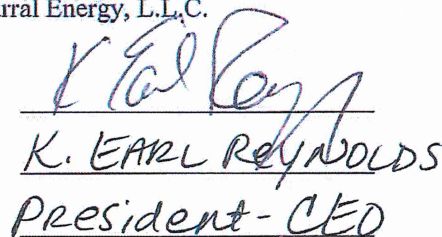 arral Energy, L.L.C.
K Earl Rey
K. EARL ReyNOLDS
President - CEO